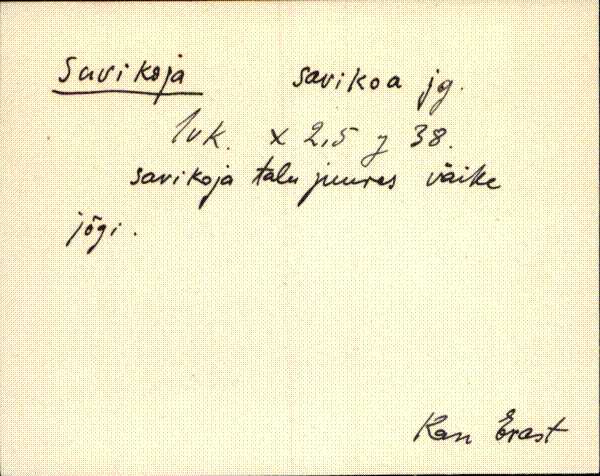 Savikoja savikoa jg.
Ivk. x 2,5 y 38.
savikoja talu juures väike
jõgi.
Kan Erast